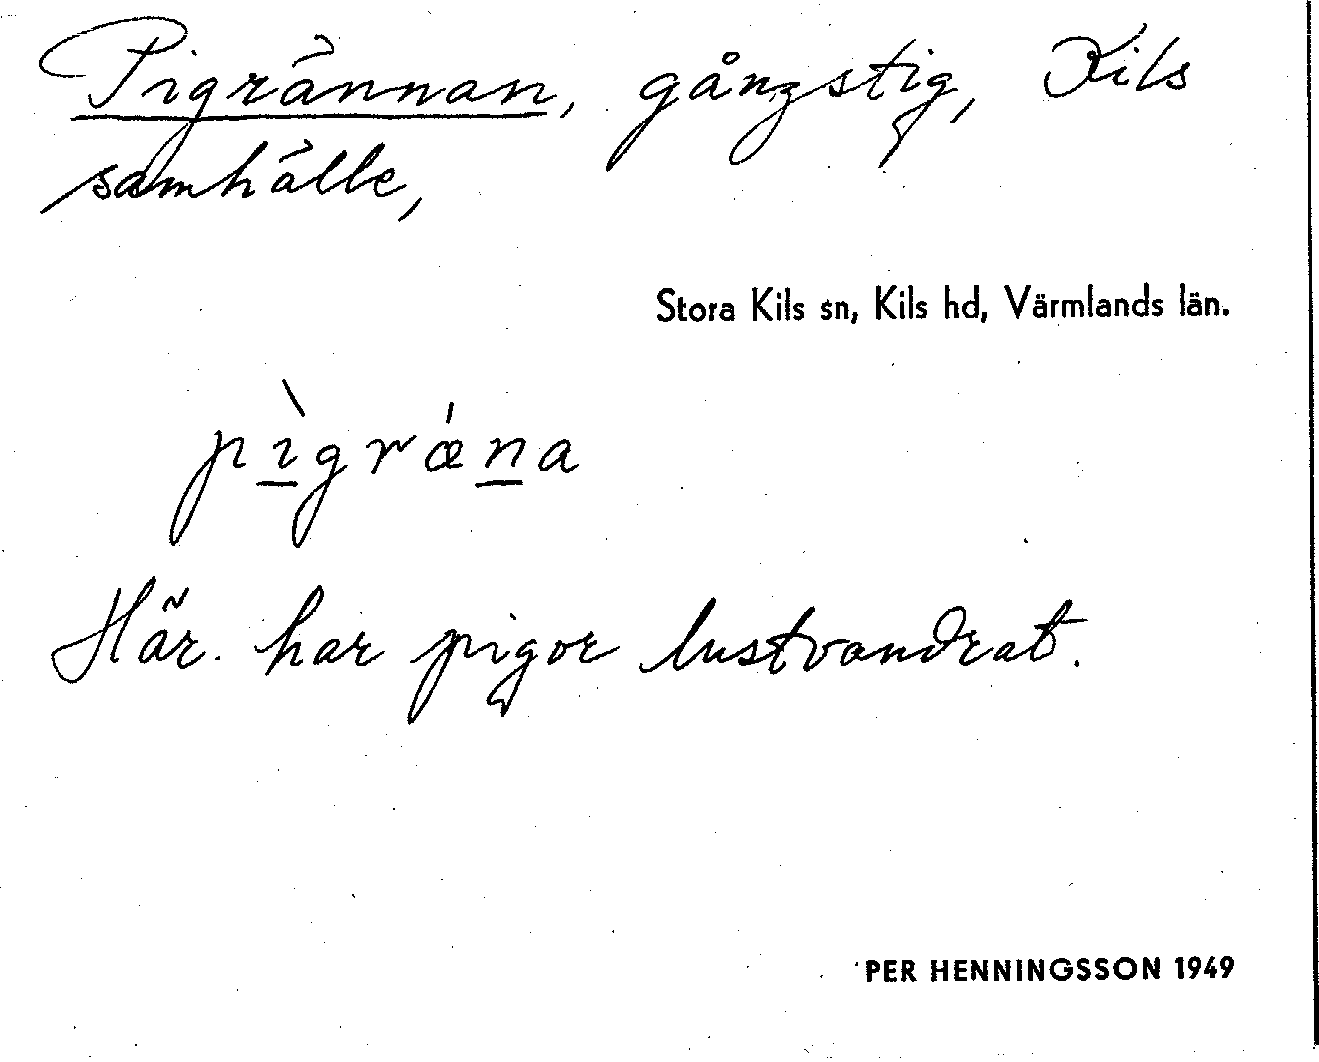 Pigrännan, gångstig, Kils
samhälle,
Stora Kils sn, Kils hd, Värmlands län.
pìgrǽna
Här har pigor lustvandrat.
PER HENNINGSSON 1949